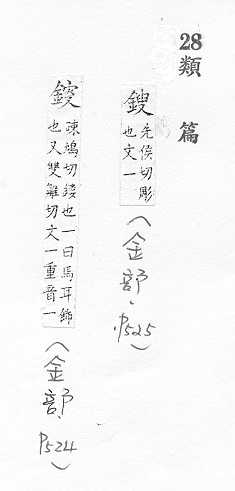 28
類
篇
鎪先侯切彫
也文一
(金部，P525)
鎫疎鳩切鎪也一曰馬耳飾
也又雙雛切文一重音一
(金部，P524)